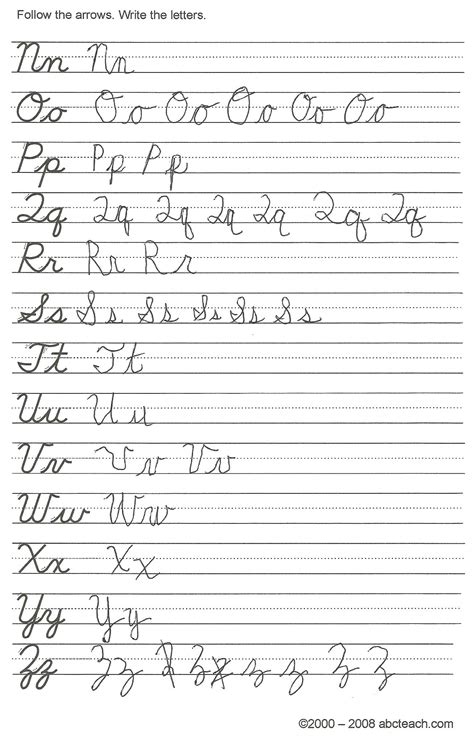 Follow the arrows. Write the letters.
Nn Nn
Oo Oo Oo Oo Oo Oo
Pp Pp Pp
Qq Qq Qq Qq Qq Qq Qq
Rr Rr Rr
Ss Ss Ss Ss Ss Ss
Tt Tt
Uu Uu
Vv Vv Vv
Ww Ww
Xx Xx
Yy Yy
Zz Zz Z z z Z Z
©2000 – 2008 abcteach.com